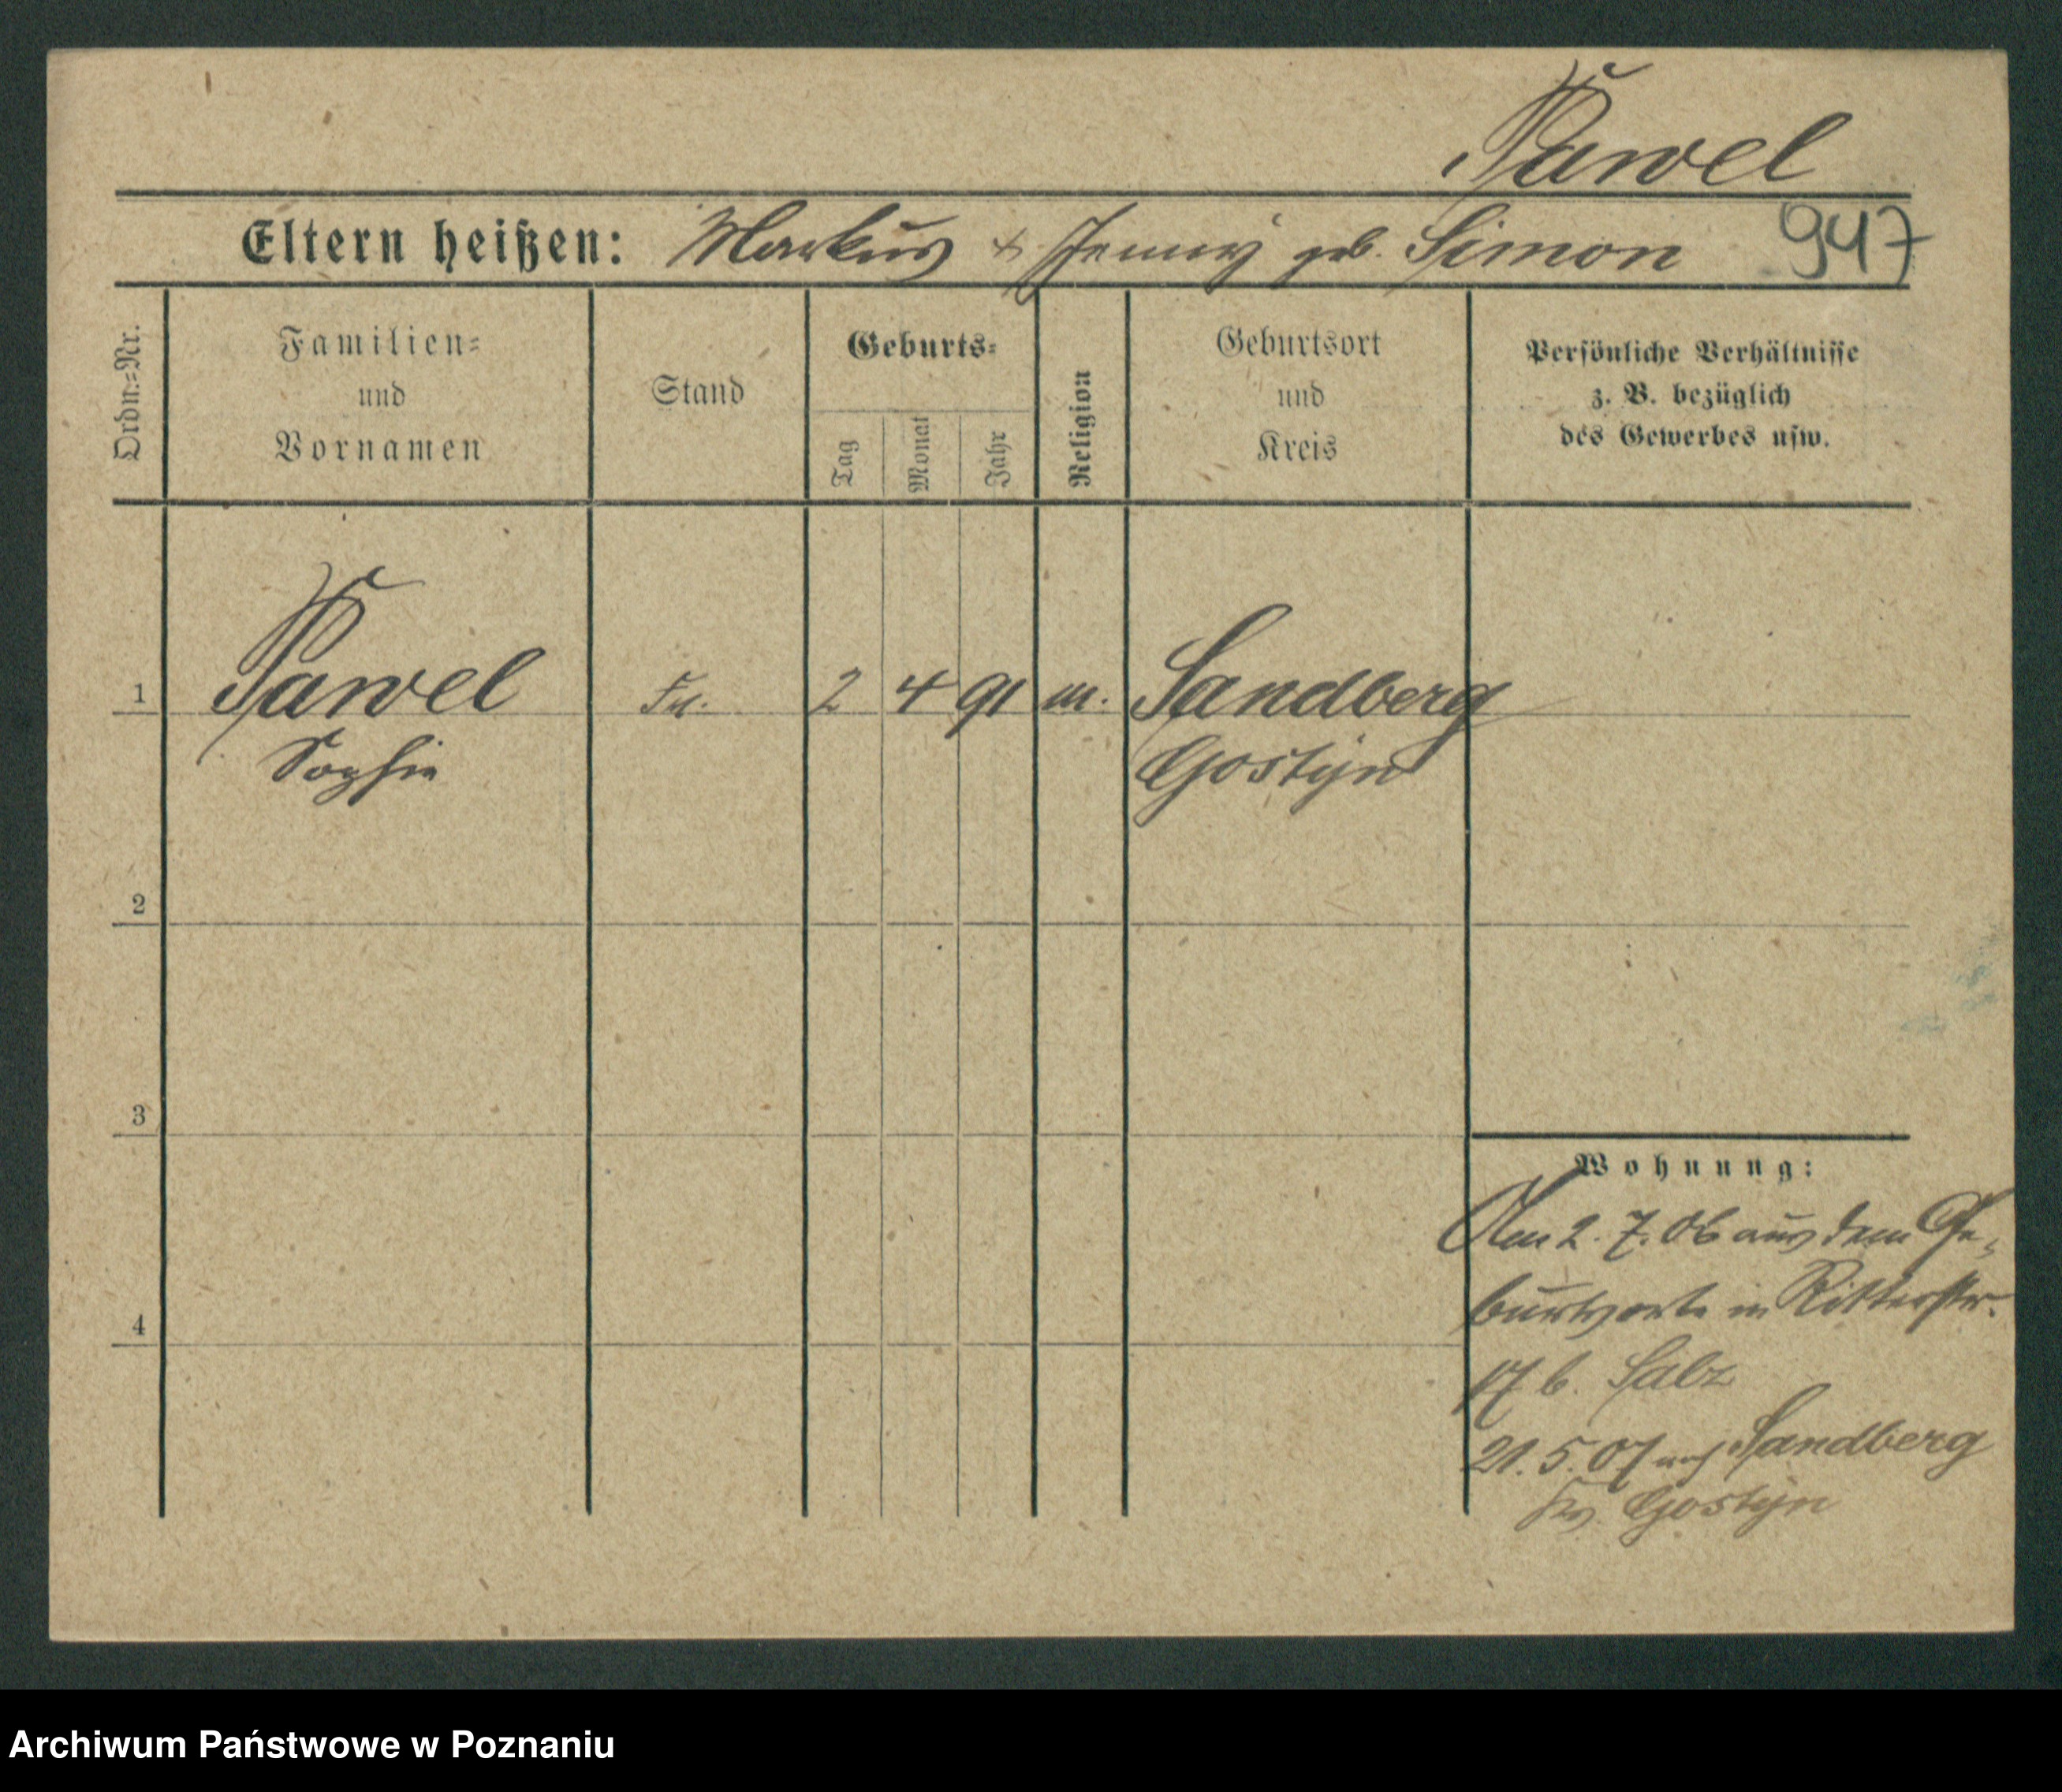 Pawel
Eltern heißen: Markus + Jenny geb. Simon 947
Ordn.=Nr.
Familien=
und
Vornamen
Stand
Geburts=
Tag
Monat
Jahr
Religion
Geburtsort
und
Kreis
Persönliche Verhältnisse
z. B. bezüglich
des Gewerbes usw.
1 Pawel 2 4 91 m. Sandberg
Sophie Gostyn
2
3
4
Wohnung:
Am 2. 7. 06 aus dem Ge-
burtsorte in Ritterstr.
17 b. Salz
21. 5. 07 nach Sandberg
Gostyn
Archiwum Państwowe w Poznaniu